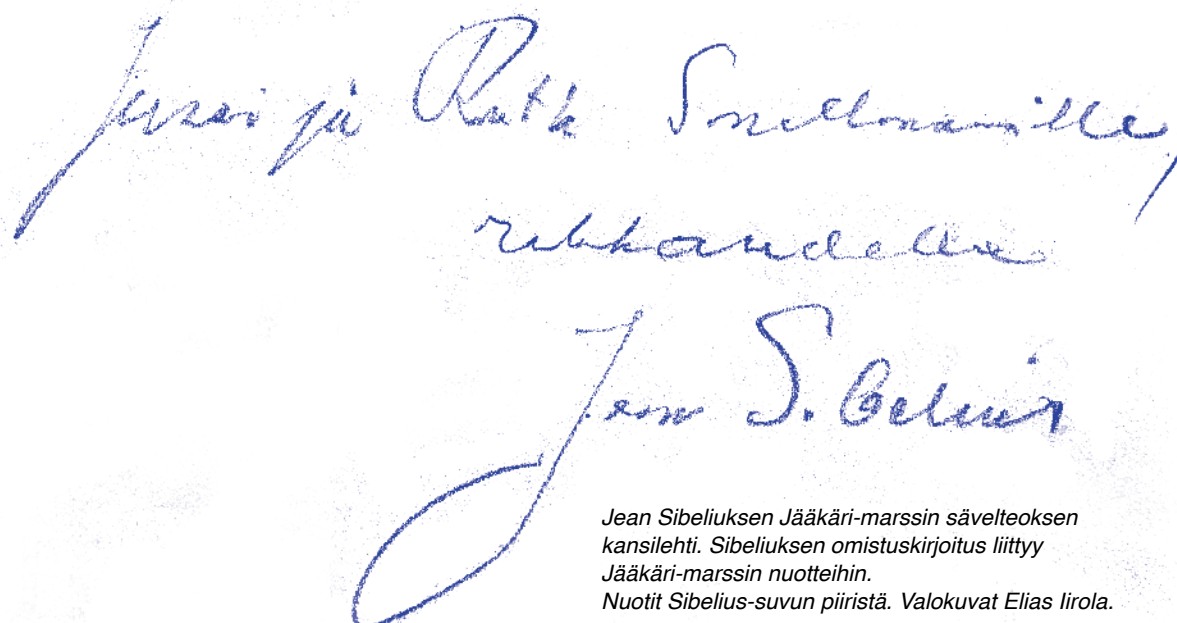 Jussi ja Ruth Snellmanille,
rakkaudella
Jean Sibelius
Jean Sibeliuksen Jääkäri-marssin sävelteoksen
kansilehti. Sibeliuksen omistuskirjoitus liittyy
Jääkäri-marssin nuotteihin.
Nuotit Sibelius-suvun piiristä. Valokuvat Elias Iirola.